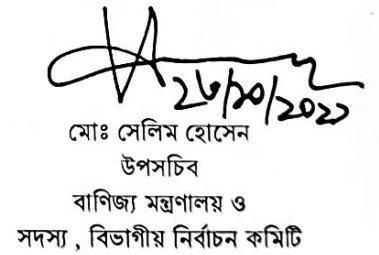 ২৬/১০/২০২২
মোঃ সেলিম হোসেন
উপসচিব
বাণিজ্য মন্ত্রণালয় ও
সদস্য , বিভাগীয় নির্বাচন কমিটি